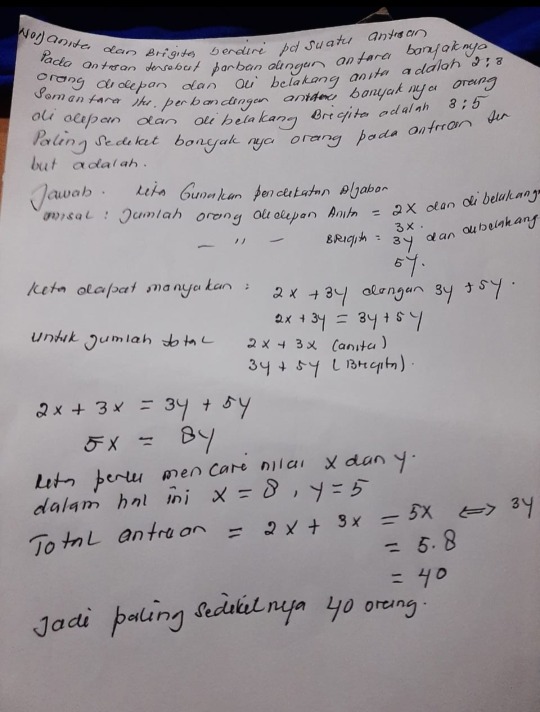 No) Anita dan Brigita berdiri pd suatu antrean
Pada antrean tersebut perbandingan antara banyaknya
orang didepan dan di belakang anita adalah 2:3
Somantara itu. perbandingan antara banyak nya orang
di depan dan di belakang Brigita adalah 3:5
Paling sedeket banyak nya orang pada antrean ter
but adalah.
Jawab. kita Gunakan pendekatan Aljabar
misal : Jumlah orang di depan Anita = 2x dan di belakang
3x.
— " — BRigita = 3y dan dibelakang
5y.
kita dapat manyakan : 2x + 3y dengan 3y + 5y.
2x + 3y = 3y + 5y
untuk jumlah total 2x + 3x (anita)
3y + 5y (Brigita).
2x + 3x = 3y + 5y
5x = 8y
kita perlu mencari nilai x dan y.
dalam hal ini x = 8, y = 5
Total antrean = 2x + 3x = 5x <=> 3y
= 5.8
= 40
Jadi paling sedeketnya 40 orang.